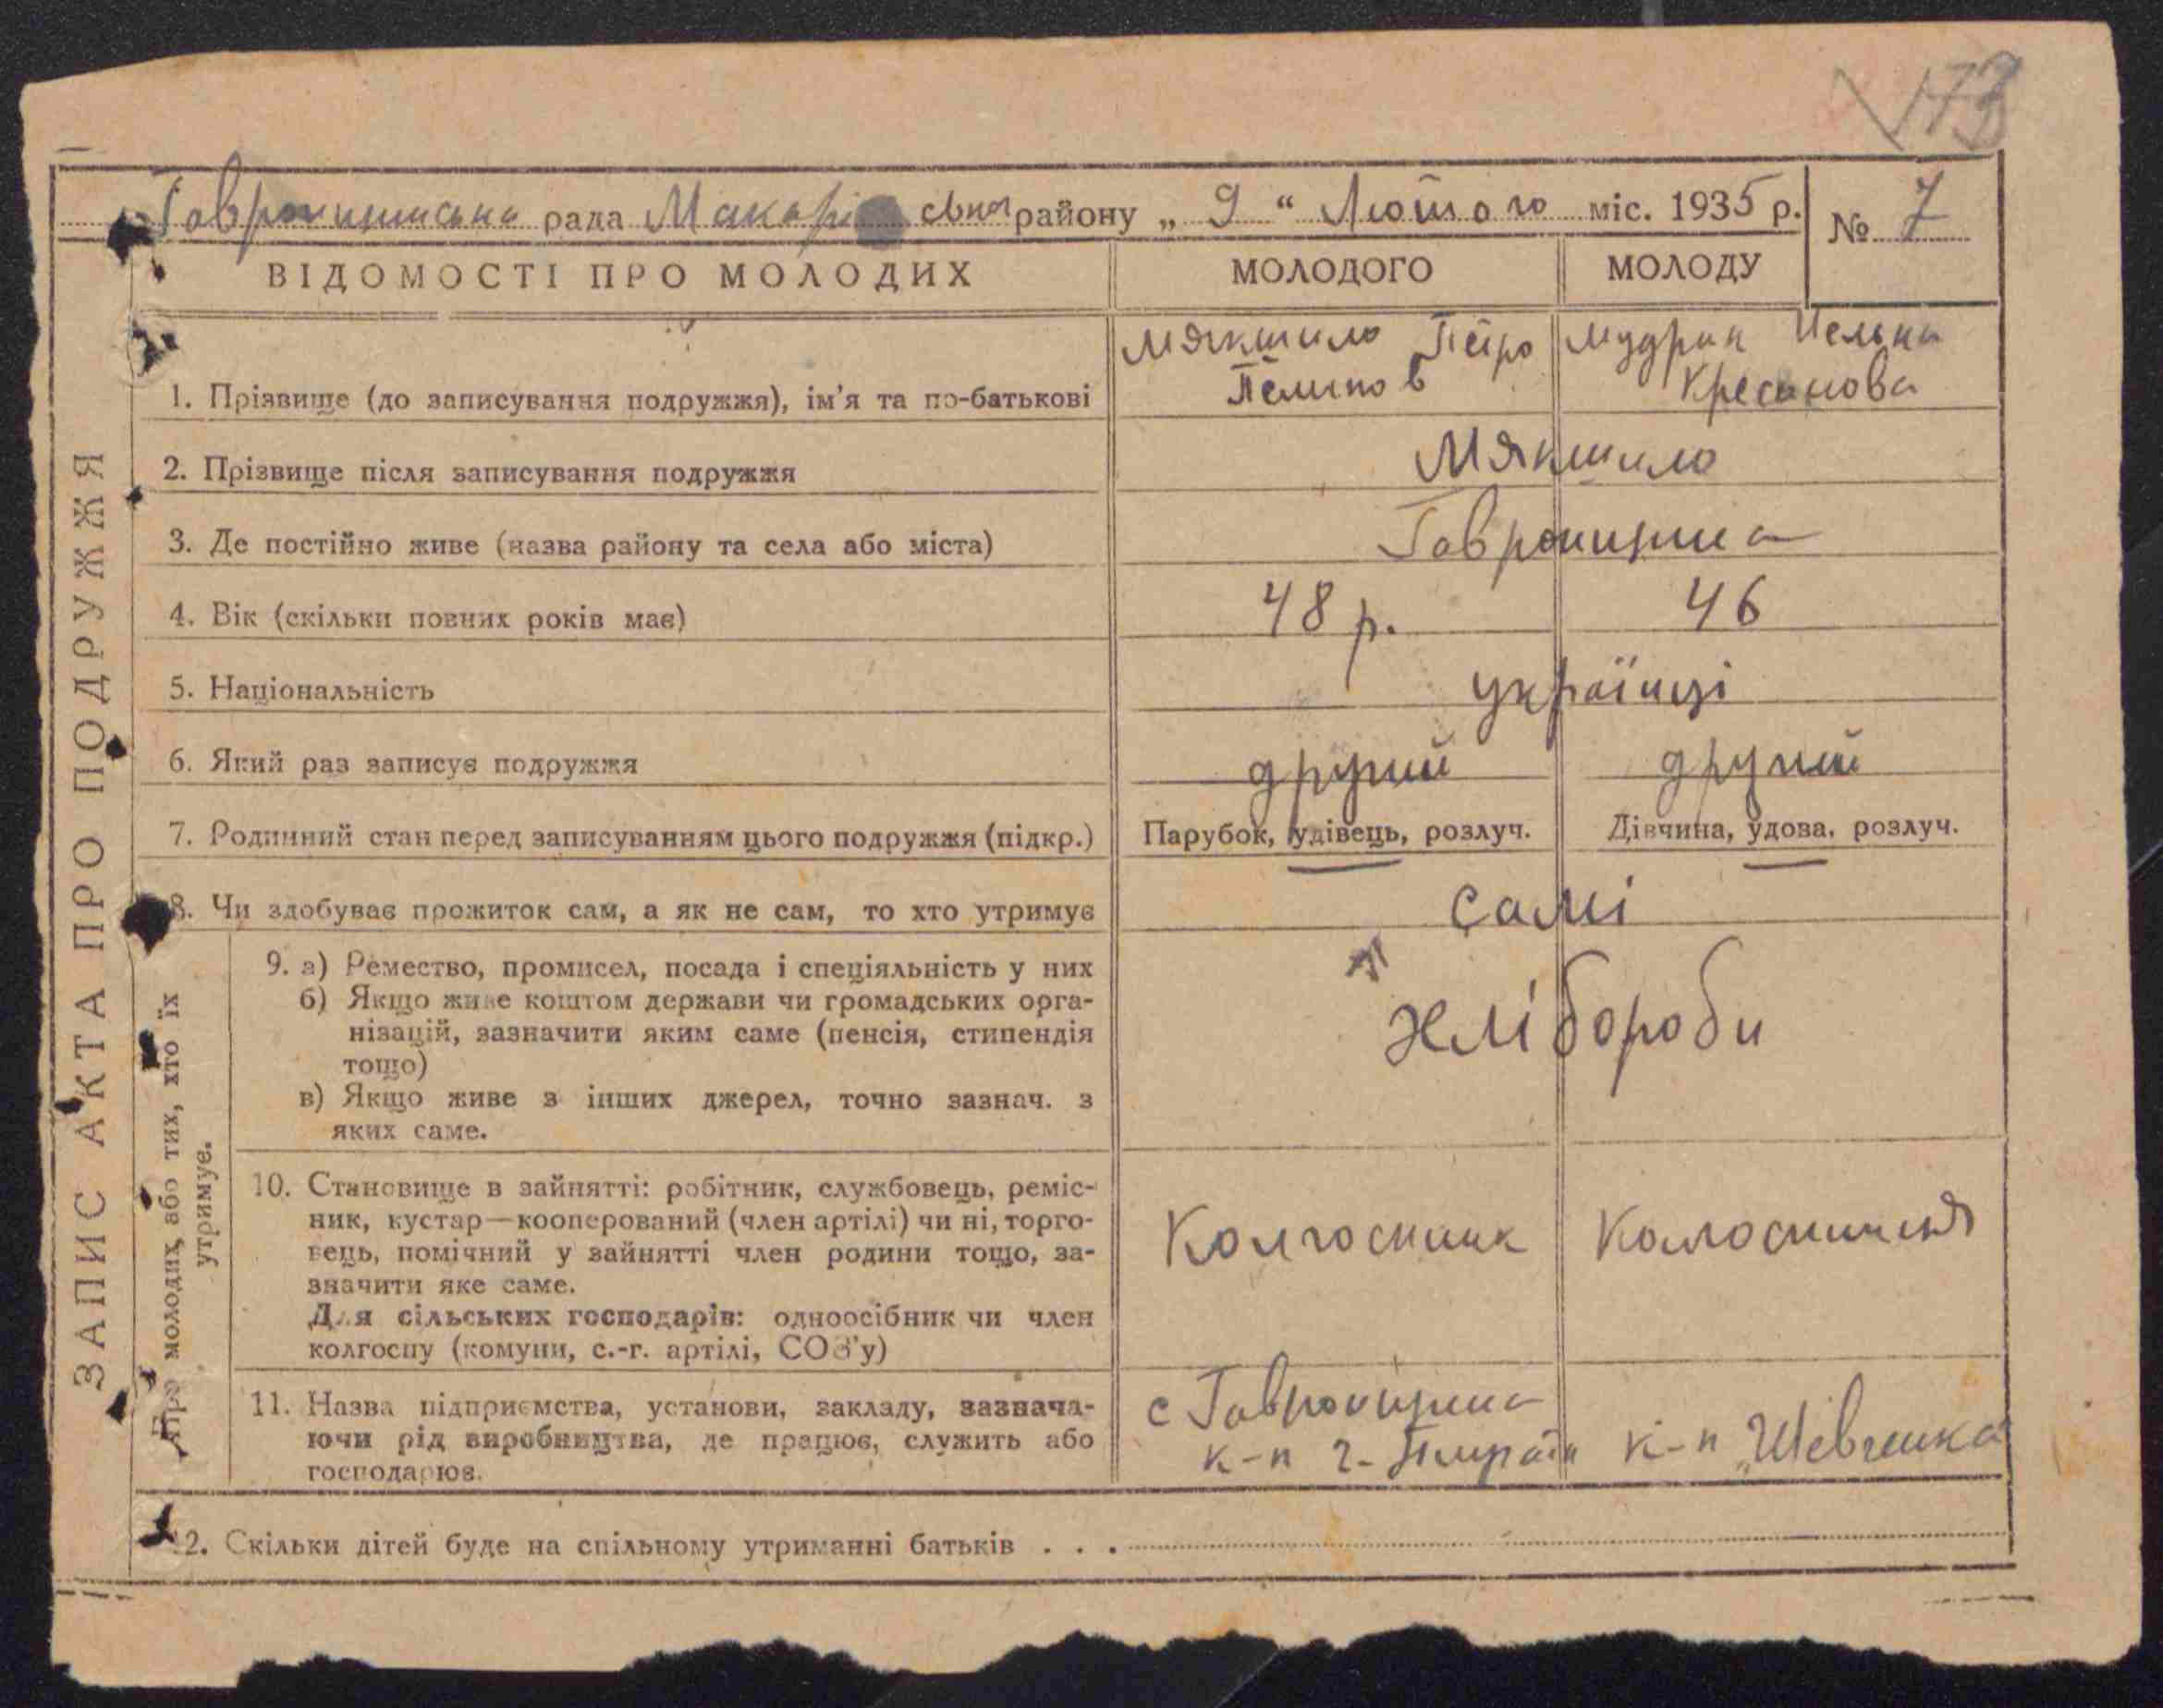 173
Гавронщинська рада Макарівської району „ 9 “ Лютого міс. 1935 р.
№ 7
ВІДОМОСТІ ПРО МОЛОДИХ
МОЛОДОГО
МОЛОДУ
ЗАПИС АКТА ПРО ПОДРУЖЖЯ
1. Прізвище (до записування подружжя), ім’я та по-батькові
Мякшило Петро
Мудрик
2. Прізвище після записування подружжя
Мякшило
3. Де постійно живе (назва району та села або міста)
Гавронщина
4. Вік (скільки повних років має)
48 р.
46
5. Національність
українці
6. Який раз записує подружжя
другий
другий
7. Родинний стан перед записуванням цього подружжя (підкр.)
Парубок, удівець, розлуч.
Дівчина, удова, розлуч.
8. Чи здобуває прожиток сам, а як не сам, то хто утримує
самі
Про молодих, або тих, хто їх
утримує.
9. а) Ремество, промисел, посада і спеціяльність у них
б) Якщо живе коштом держави чи громадських орга-
нізацій, зазначити яким саме (пенсія, стипендія
тощо)
в) Якщо живе з інших джерел, точно зазнач. з
яких саме.
хлібороби
10. Становище в зайнятті: робітник, службовець, реміс-
ник, кустар—кооперований (член артілі) чи ні, торго-
вець, помічний у зайнятті член родини тощо, за-
значити яке саме.
Для сільських господарів: одноосібник чи член
колгоспу (комуни, с.-г. артілі, СОЗ’у)
Колгоспник
Колгоспниця
11. Назва підприємства, установи, закладу, зазнача-
ючи рід виробництва, де працює, служить або
господарює.
с Гавронщина
к-п
к-п „Шевченка
12. Скільки дітей буде на спільному утриманні батьків . . .